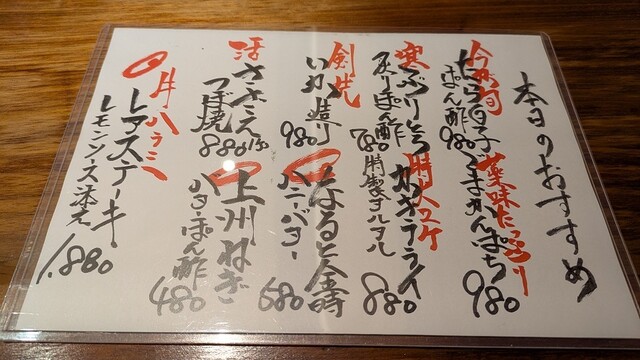 本日のおすすめ
今が旬
たら白子
ぽん酢 980
薬味たっぷり
ごまかんぱち
980
寒ぶりとろ
炙りぽん酢
780
特大ユケ
カキフライ
特製タルタル
880
剣先
いか造り
980
なると金時
ハニーバター
680
活
さざえ
つぼ焼
880
上州ねぎ
バターぽん酢
480
牛ハラミ
レアステーキ
レモンソース添え
1,880